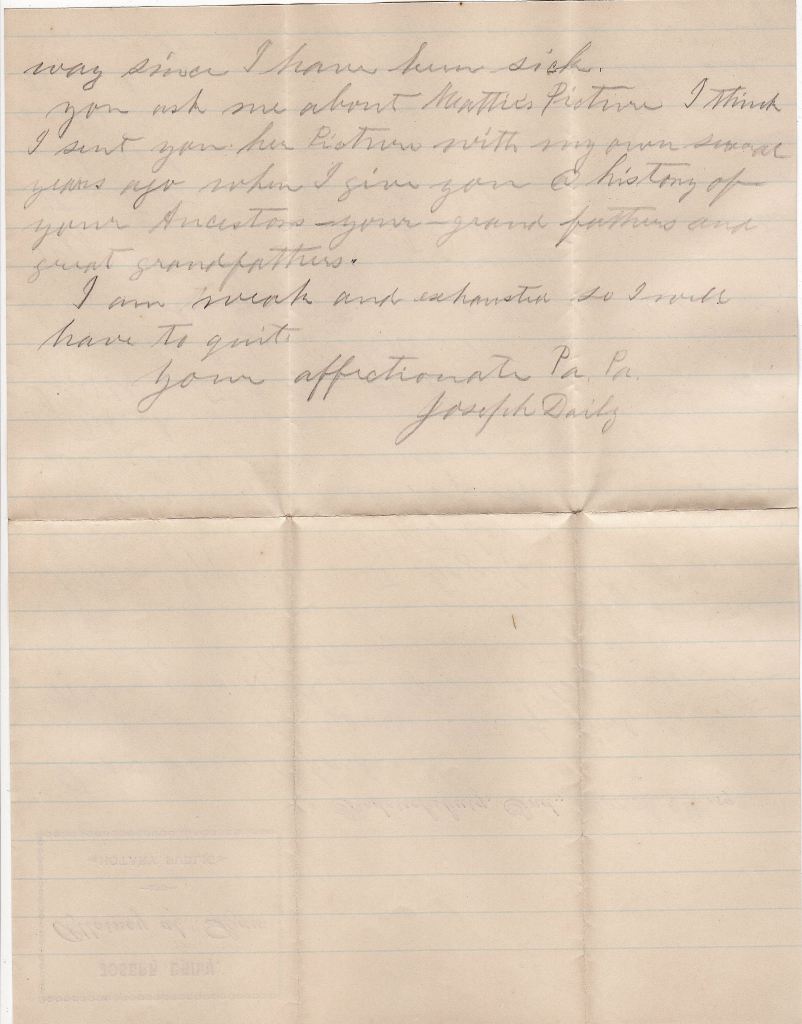 way since I have been sick.
you ask me about Mattie's Picture I think
I sent you her Picture with my own several
years ago when I give you a history of
your Ancestors - your - grand fathers and
great grandfathers.
I am weak and exhausted so I will
have to quit
Your affectionate Pa. Pa.
Joseph Daily
NOTARY PUBLIC
Attorney at Law
JOSEPH DAILY